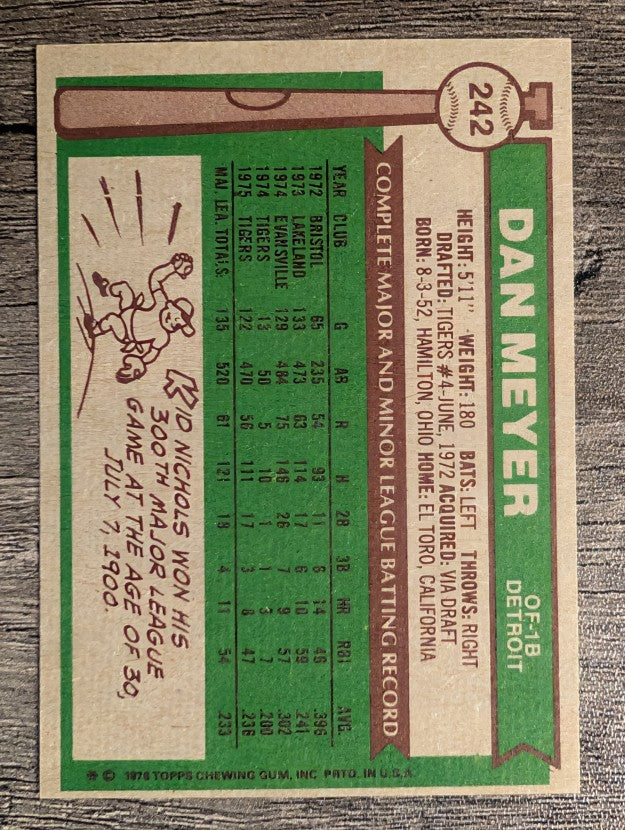 242
DAN MEYER
OF-1B
DETROIT
HEIGHT: 5'11" WEIGHT: 180 BATS: LEFT THROWS: RIGHT
DRAFTED: TIGERS #4-JUNE, 1972 ACQUIRED: VIA DRAFT
BORN: 8-3-52, HAMILTON, OHIO HOME: EL TORO, CALIFORNIA
COMPLETE MAJOR AND MINOR LEAGUE BATTING RECORD
YEAR CLUB G AB R H 2B 3B HR RBI AVG.
1972 BRISTOL 65 235 54 93 11 6 14 46 .396
1973 LAKELAND 133 473 63 114 17 6 10 59 .241
1974 EVANSVILLE 129 484 75 146 26 7 9 57 .302
1974 TIGERS 13 50 5 10 1 1 3 7 .200
1975 TIGERS 122 470 56 111 17 3 8 47 .236
MAJ. LEA. TOTALS: 135 520 61 121 18 4 11 54 .233
KID NICHOLS WON HIS
300TH MAJOR LEAGUE
GAME AT THE AGE OF 30,
JULY 7, 1900.
* © 1976 TOPPS CHEWING GUM, INC PRTD. IN U.S.A.